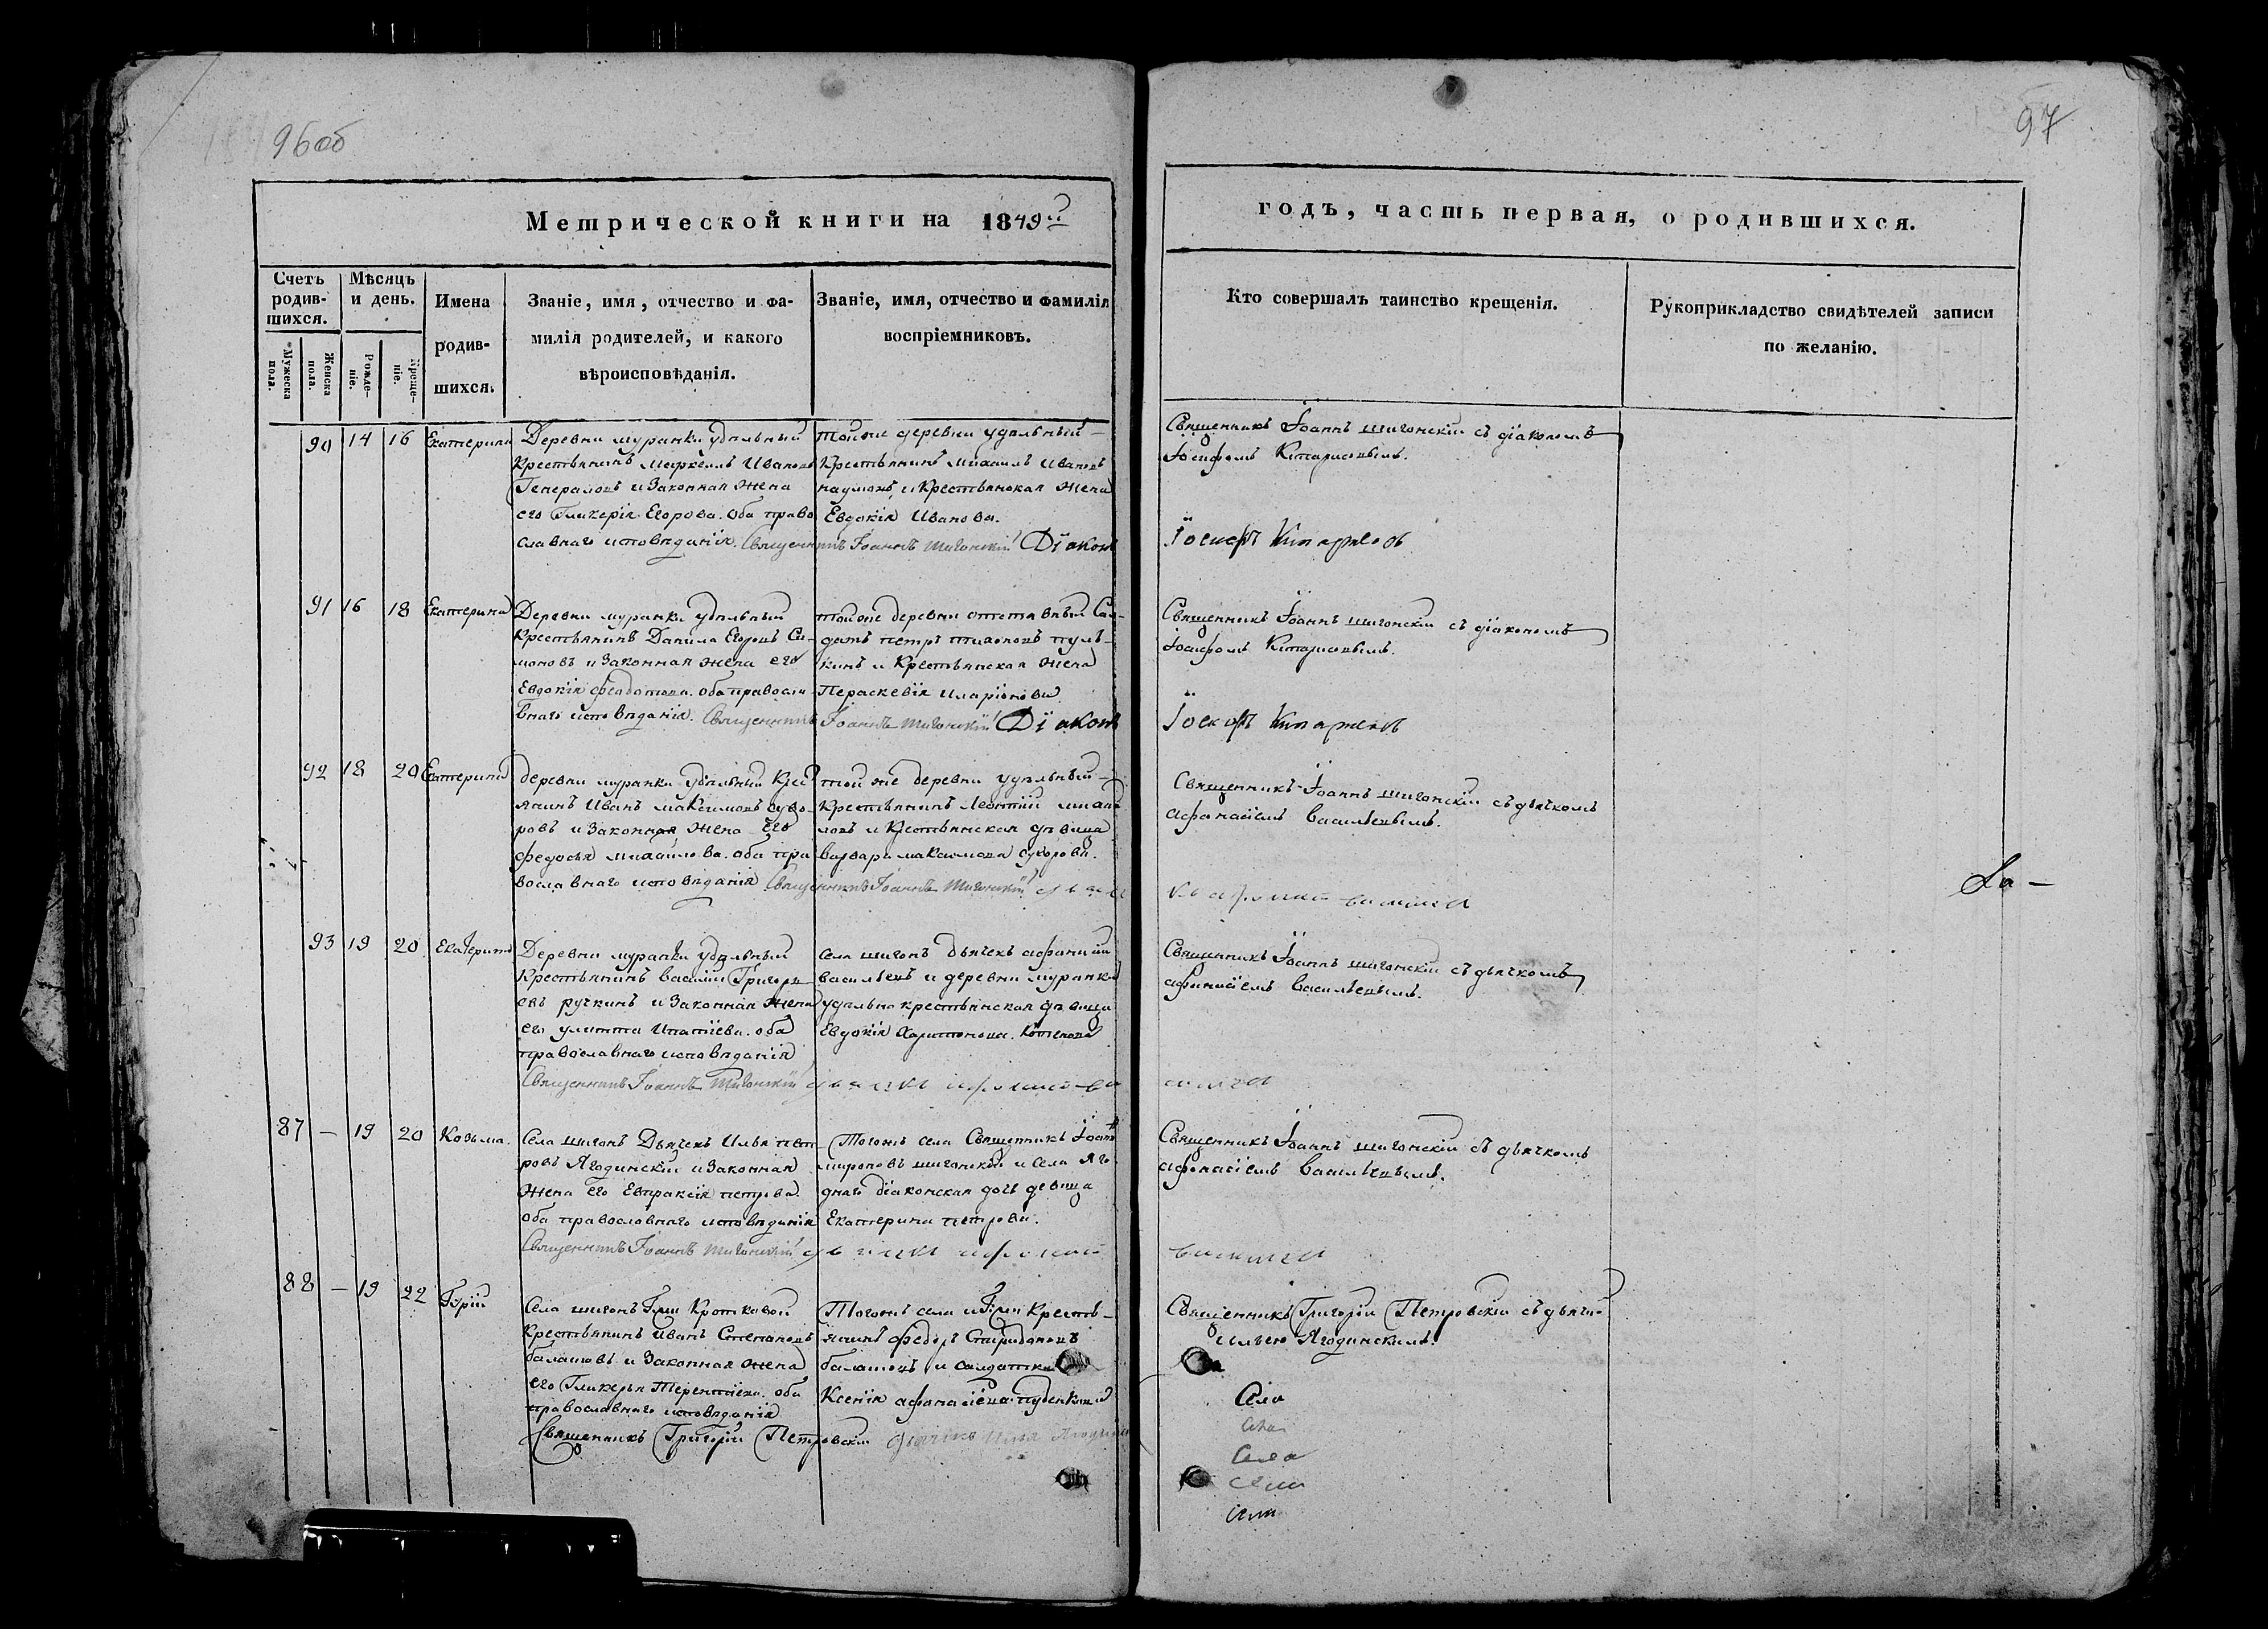 96об
97
Метрической книги на 1849й
годъ, часть первая, о родившихся.
Счетъ родив-шихся.
Мѣсяцъ и день.
Имена родив-шихся.
Званіе, имя, отчество и фа-
милія родителей, и какого
вѣроисповѣданія.
Званіе, имя, отчество и фамилія
воспріемниковъ.
Кто совершалъ таинство крещенія.
Рукоприкладство свидѣтелей записи
по желанію.
Мужеска пола.
Женска пола.
Рожде-ніе.
Креще-ніе.
90 14 16 Екатерина
Деревни муранки удѣльный
Крестьянинъ Иванов
и Законная Жена
его Гликерія Егорова. оба право
славнаго исповѣданія. Священникъ Іоаннъ Шигонскій Діаконъ
тойже деревни удѣльный
Крестьянинъ Михаилъ Ивановъ
наумовъ и Крестьянская Жена
Евдокія Иванова.
Священникъ Іоаннъ шигонскій съ діакономъ
Іосифомъ
Іосифъ
91 16 18 Екатерина
Деревни муранки удѣльный
Крестьянинъ Данила Егоровъ Си-
моновъ и Законная жена его
Евдокія Федотова. оба правосла-
внаго исповѣданія. Священникъ Іоаннъ Шигонскій Діаконъ
тойже деревни отставный Сол-
датъ петръ тихоновъ пуль-
кинъ и Крестьянская Жена
Параскевія иларіонова
Священникъ Іоаннъ шигонскій съ діакономъ
Іосифомъ
Іосифъ
92 18 20 Екатерина
деревни муранки удѣльный Крес
янинъ Иванъ максимовъ Суво-
ровъ и Законная Жена его
федосья михайлова. оба пра
вославнаго исповѣданія Священникъ Іоаннъ Шигонскій
той же деревни удѣльный
Крестьянинъ Леонтій
и Крестьянская дѣвица
варвара максимова
Священникъ Іоаннъ шигонскій съ дьячкомъ
афанасіемъ Васильевымъ.
93 19 20 Екатерина
Деревни муранки удѣльный
Крестьянинъ василій Григорь
евъ ручкинъ и Законная Жена
его улитта Ипатіева. оба
православнаго исповѣданія
Священникъ Іоаннъ Шигонскій
села шигонъ дьячекъ афанасій
васильевъ и деревни муранки
удѣльно крестьянская дѣвица
Евдокія Харитонова.
Священникъ Іоаннъ шигонскій съ дьячкомъ
афанасіемъ Васильевымъ.
87 — 19 20 Козьма.
Села шигонъ Дьячекъ Илья пет-
ровъ Ягодинскій и Законная
Жена его Евпраксія петрова.
оба православнаго исповѣданія
Священникъ Іоаннъ Шигонскій
Тогожъ села Священникъ Іоаннъ
мироновъ шигонскій и села Яго
днаго діаконская дочь девица
Екатерина петрова.
Священникъ Іоаннъ шигонскій съ дьячкомъ
афанасіемъ Васильевымъ.
88 — 19 22 Гурій
Села шигонъ Гжи Кротковой
Крестьянинъ Иванъ Степановъ
балашовъ и Законная Жена
его Гликерья Терентіева. оба
православнаго исповѣданія
Священникъ Григорій Петровскій дьячекъ Илья
Тогожъ села и Гжи Кресть-
янинъ федоръ Спиридоновъ
балашовъ и солдатка
Ксенія афанасіева
Священникъ Григорій Петровскій съ дьячк
Ильею Ягодинскимъ.
Села